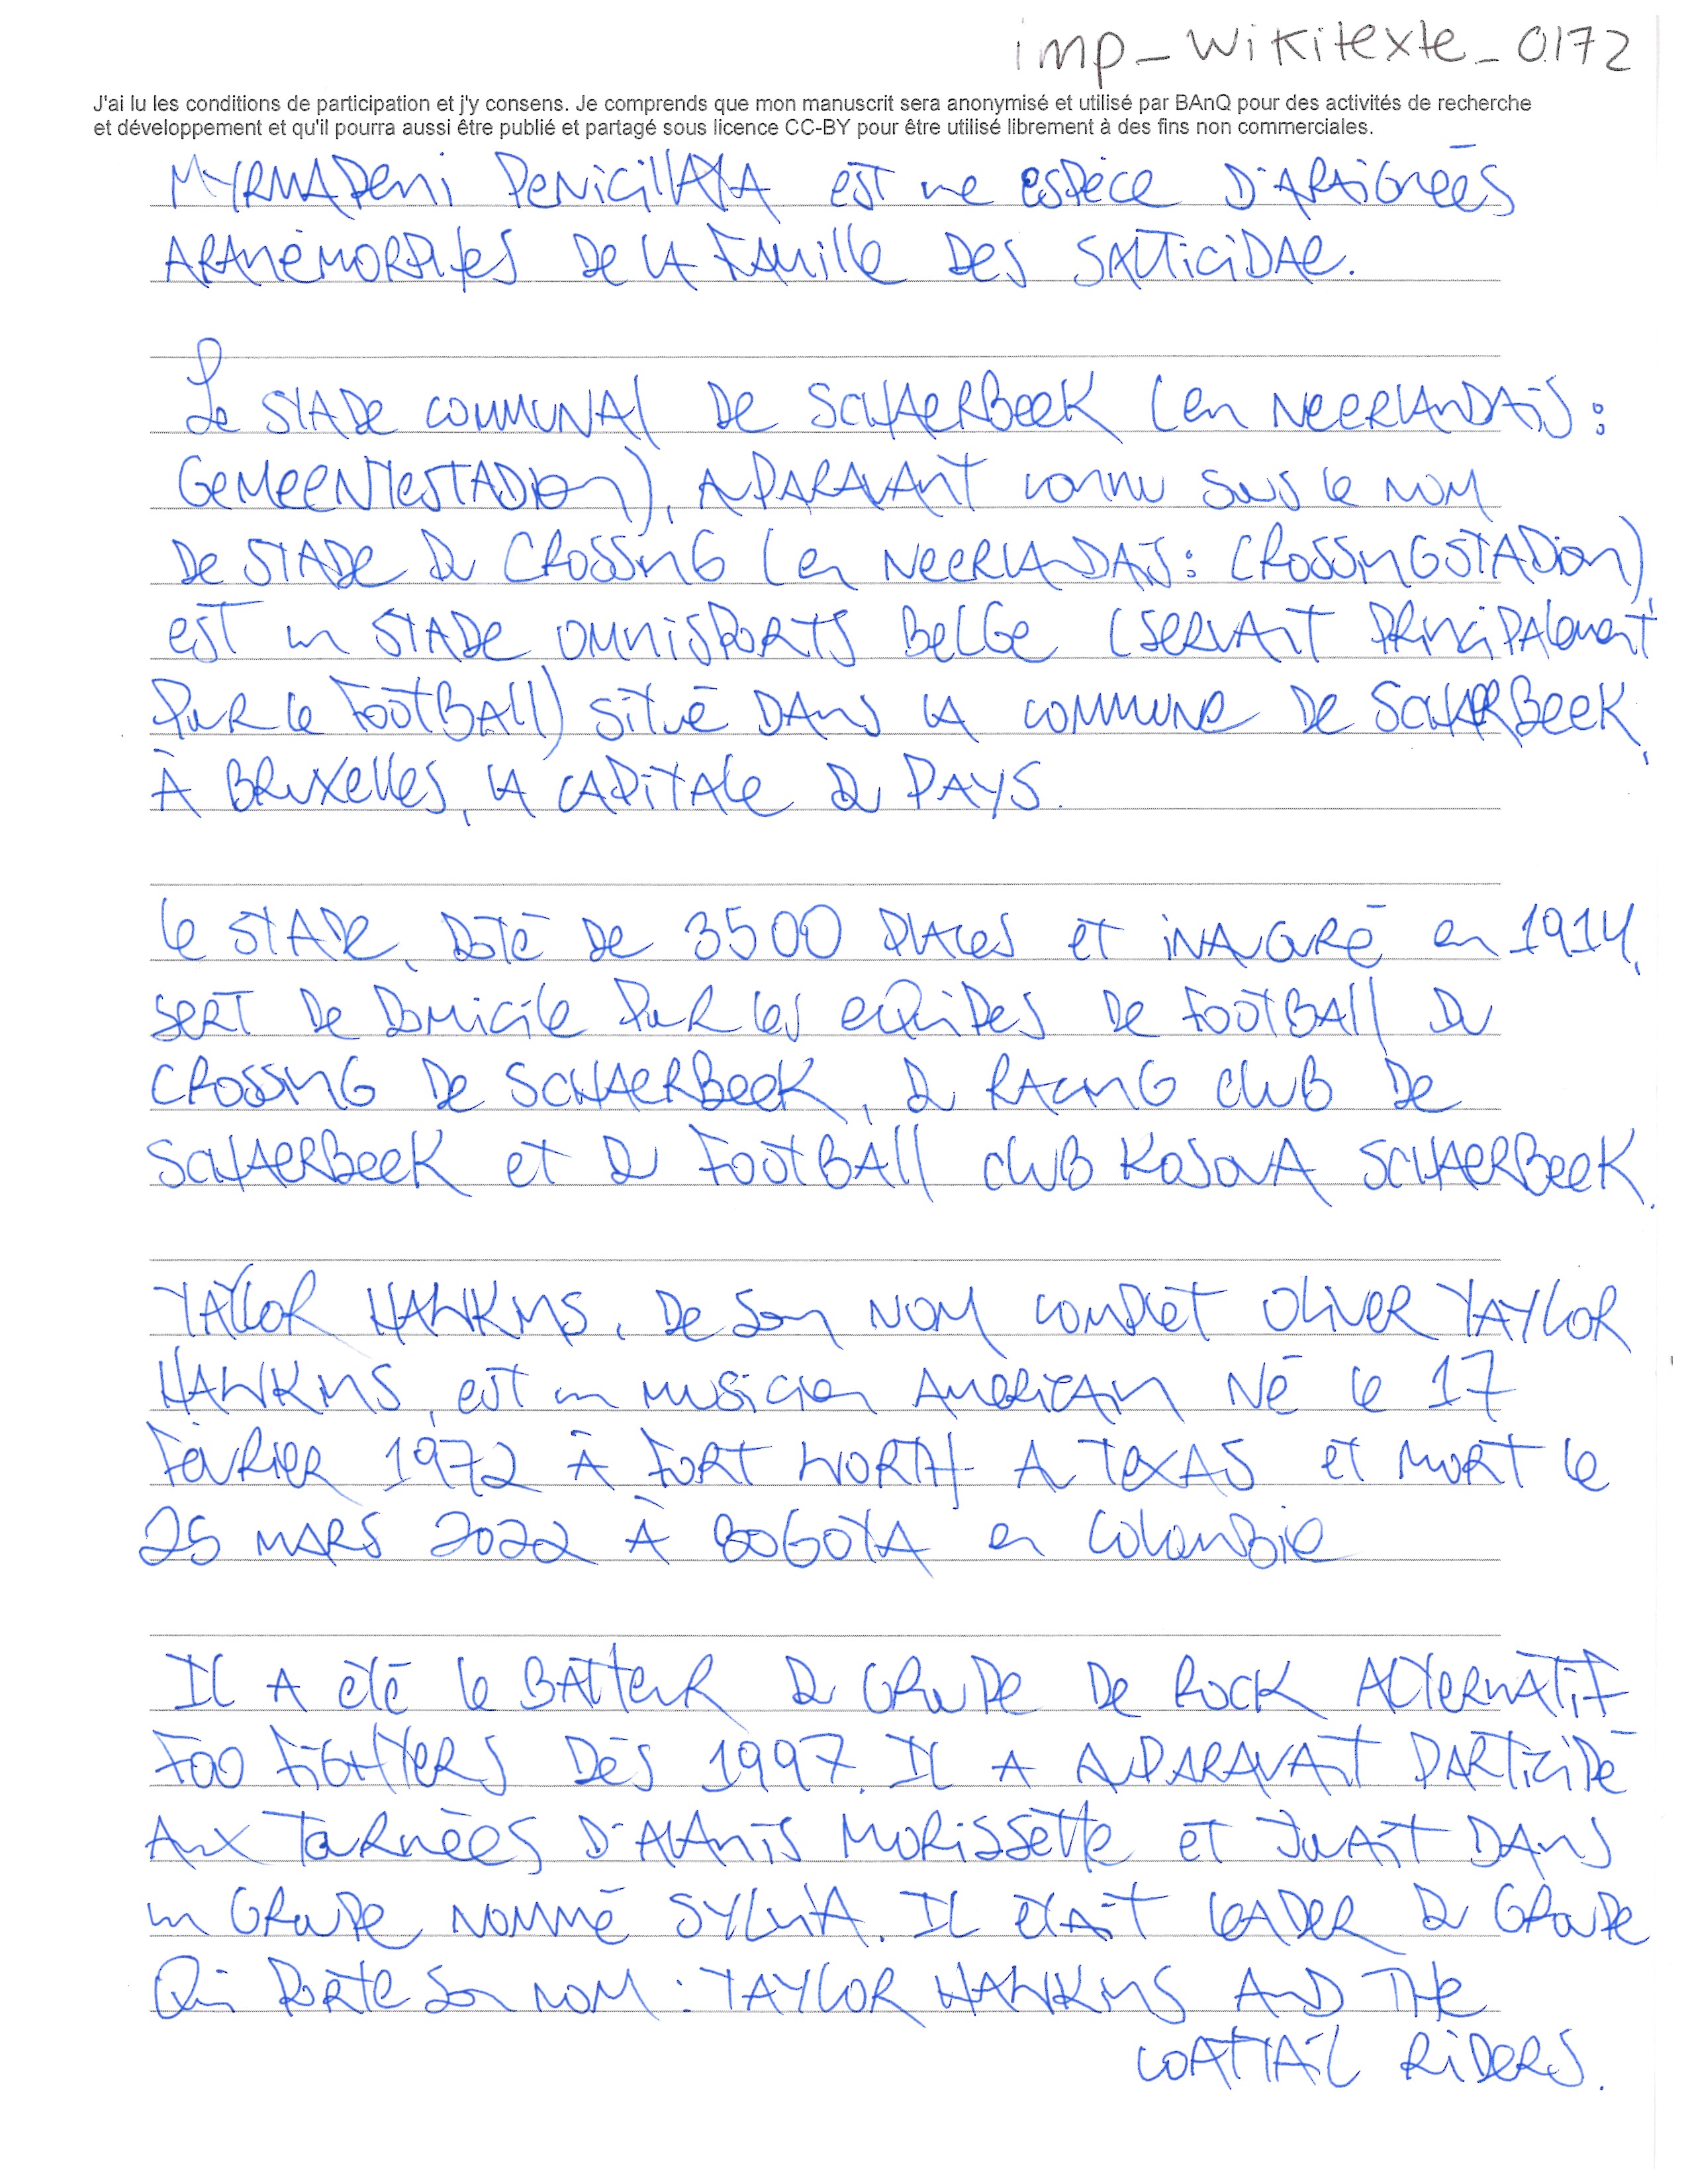 imp_wikitexte_0172
J'ai lu les conditions de participation et j'y consens. Je comprends que mon manuscrit sera anonymisé et utilisé par BAnQ pour des activités de recherche
et développement et qu'il pourra aussi être publié et partagé sous licence CC-BY pour être utilisé librement à des fins non commerciales.
Myrmapeni penicillata est une espèce d'araignées
aranéomorphes de la famille des Salticidae.
Le stade communal de Schaerbeek (en néerlandais :
Gemeentestadion), auparavant connu sous le nom
de stade du Crossing (en néerlandais : Crossingstadion)
est un stade omnisports belge (servant principalement
pour le football) situé dans la commune de Schaerbeek,
à Bruxelles, la capitale du pays.
Le stade, doté de 3500 places et inauguré en 1914,
sert de domicile pour les équipes de football du
Crossing de Schaerbeek, du Racing Club de
Schaerbeek et du Football Club Kosova Schaerbeek.
Taylor Hawkins, de son nom complet Oliver Taylor
Hawkins, est un musicien américain né le 17
février 1972 à Fort Worth au Texas et mort le
25 mars 2022 à Bogota en Colombie
Il a été le batteur du groupe de rock alternatif
Foo Fighters dès 1997. Il a auparavant participé
aux tournées d'Alanis Morissette et jouait dans
un groupe nommé Sylvia. Il était leader du groupe
qui porte son nom : Taylor Hawkins and the
Coattail Riders.